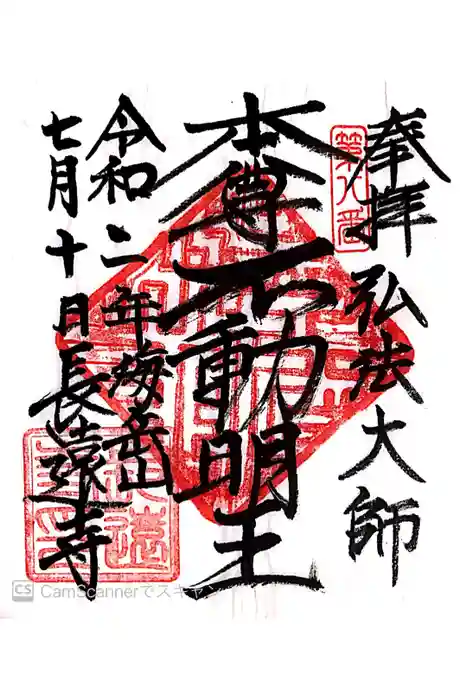 奉拝
弘法大師
第八番
本尊不動明王
令和二年
梅岳山
七月十日
長遠寺
CS CamScannerでスキャン